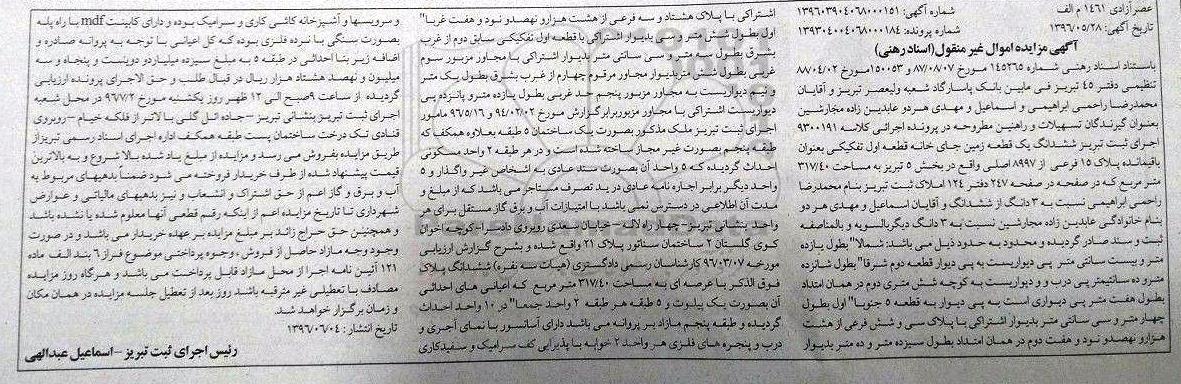 عصر آزادی ۱۴۶۱ م الف
شماره آگهی: ۱۳۹۶۰۳۹۰۴۰۶۸۰۰۰۱۵۱
تاریخ آگهی: ۱۳۹۶/۰۵/۲۸
شماره پرونده: ۱۳۹۳۰۴۰۰۴۰۶۸۰۰۰۱۸۴
آگهی مزایده اموال غیر منقول (اسناد رهنی)
باستناد اسناد رهنی شماره ۱۴۵۲۶۵ مورخ ۸۷/۰۸/۰۷ و ۱۵۰۰۵۳ مورخ ۸۸/۰۴/۰۲
تنظیمی دفتر ۴۵ تبریز فی مابین بانک پاسارگاد شعبه ولیعصر تبریز و آقایان
محمدرضا راحمی ابراهیمی و اسماعیل و مهدی هر دو عابدین زاده مجارشین
بعنوان گیرندگان تسهیلات و راهنین مطروحه در پرونده اجرائی کلاسه ۹۳۰۰۱۹۱
اجرای ثبت تبریز ششدانگ یک قطعه زمین جای خانه قطعه اول تفکیکی بعنوان
باقیمانده پلاک ۱۵ فرعی از ۸۹۹۷ اصلی واقع در بخش ۵ تبریز به مساحت ۳۱۷/۴۰
متر مربع که در صفحه در صفحه ۲۴۷ دفتر ۱۲۴ املاک ثبت تبریز بنام محمدرضا
راحمی ابراهیمی نسبت به ۳ دانگ از ششدانگ و آقایان اسماعیل و مهدی هر دو
بنام خانوادگی عابدین زاده مجارشین نسبت به ۳ دانگ دیگر بالسویه و بالمناصفه
ثبت و سند صادر گردیده و محدود به حدود ذیل می باشد: شمالا" بطول یازده
متر و بیست سانتی متر پی دیواریست به پی دیوار قطعه دوم شرقا" بطول شانزده
متر و ده سانتیمتر پی درب و و دیواریست به کوچه شش متری دوم در همان امتداد
بطول هفت متر پی دیواری است به پی دیوار به قطعه ۵ جنوبا" اول بطول
چهار متر و سی سانتی متر بدیوار اشتراکی با پلاک سی و شش فرعی از هشت
هزارو نهصدو نود و هفت دوم در همان امتداد بطول سیزده متر و ده متر بدیوار
اشتراکی با پلاک هشتاد و سه فرعی از هشت هزارو نهصدو نود و هفت غربا"
اول بطول شش متر و سی بدیوار اشتراکی با قطعه اول تفکیکی سابق دوم از غرب
بشرق بطول سه متر و سی سانتی متر بدیوار اشتراکی با مجاور مزبور سوم
غربی بطول شش متر بدیوار مجاور مرقوم چهارم از غرب بشرق بطول یک متر
و نیم دیواریست به مجاور مزبور پنجم حد غربی بطول یازده مترو پانزده پی
دیواریست اشتراکی با مجاور مزبور برابر گزارش مورخ ۹۴/۰۳/۰۲ و ۹۶/۵/۱۶ مامور
اجرای ثبت تبریز ملک مذکور بصورت یک ساختمان ۵ طبقه بعلاوه همکف که
طبقه پنجم بصورت غیر مجاز ساخته شده است و در هر طبقه ۲ واحد مسکونی
احداث گردیده که ۵ واحد آن بصورت سند عادی به اشخاص غیر واگذار و ۵
واحد دیگر برابر اجاره نامه عادی در ید تصرف مستاجر می باشد که از مبلغ و
مدت آن اطلاعی در دسترس نمی باشد با امتیازات آب و برق گاز مستقل برای هر
واحد بنشانی تبریز- چهار راه لاله - خیابان سعدی روبروی دادسرا- کوچه اخوان
کوی گلستان ۲ ساختمان سناتور پلاک ۲۱ واقع شده و بشرح گزارش ارزیابی
مورخه ۹۶/۰۳/۰۷ کارشناسان رسمی دادگستری (هیات سه نفره) ششدانگ پلاک
فوق الذکر با عرصه ای به مساحت ۳۱۷/۴۰ متر مربع که اعیانی های احداثی
آن بصورت یک پیلوت و ۵ طبقه هر طبقه ۲ واحد جمعا" در ۱۰ واحد احداث
گردیده و طبقه پنجم مازاد بر پروانه می باشد دارای آسانسور با نمای آجری و
درب و پنجره های فلزی هر واحد ۲ خوابه با پذیرایی کف سرامیک و سفیدکاری
و سرویسها و آشپزخانه کاشی کاری و سرامیک بوده و دارای کابینت mdf با راه پله
بصورت سنگی با نرده فلزی بوده که کل اعیانی با توجه به پروانه صادره و
اضافه زیر بنا احداثی در طبقه ۵ به مبلغ سیزده میلیاردو دویست و پنجاه و سه
میلیون و نهصد هشتاد هزار ریال در قبال طلب و حق الاجرای پرونده ارزیابی
گردیده از ساعت ۹ صبح الی ۱۲ ظهر روز یکشنبه مورخ ۹۶/۷/۲ در محل شعبه
اجرای ثبت تبریز بنشانی تبریز - جاده ائل گلی با لاتر از فلکه خیام - روبروی
قنادی تک درخت ساختمان پست طبقه همکف اداره اجرای اسناد رسمی تبریز از
طریق مزایده بفروش می رسد و مزایده از مبلغ یاد شده بالا شروع و به بالاترین
قیمت پیشنهاد شده از طرف خریدار فروخته می شود ضمنا بدهیهای مربوط به
آب و برق و گاز اعم از حق اشتراک و انشعاب و نیز بدهیهای مالیاتی و عوارض
شهرداری تا تاریخ مزایده اعم از اینکه رقم قطعی آنها معلوم شده یا نشده باشد
و همچنین حق حراج زائد بر مبلغ مزایده بر عهده خریدار می باشد و در صورت
وجود وجه مازاد حاصل از فروش، وجوه پرداختی موضوع فراز ۶ بند الف ماده
۱۲۱ آئین نامه اجرا از محل مازاد قابل پرداخت می باشد و هرگاه روز مزایده
مصادف با تعطیلی غیر مترقبه باشد روز بعد از تعطیل جلسه مزایده در همان مکان
و زمان برگزار خواهد شد.
تاریخ انتشار: ۱۳۹۶/۰۶/۰۴
رئیس اجرای ثبت تبریز - اسماعیل عبدالهی